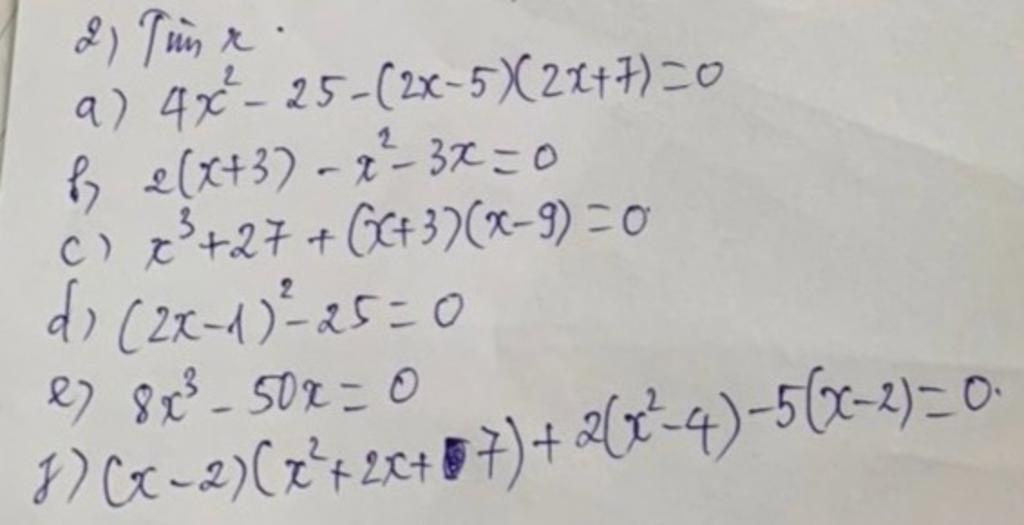 2) Tìm x.
a) 4x² - 25 - (2x-5)(2x+7) = 0
b, 2(x+3) - x² - 3x = 0
c) x³ + 27 + (x+3)(x-9) = 0
d) (2x-1)² - 25 = 0
e) 8x³ - 50x = 0
f) (x-2)(x² + 2x + 7) + 2(x² - 4) - 5(x-2) = 0.